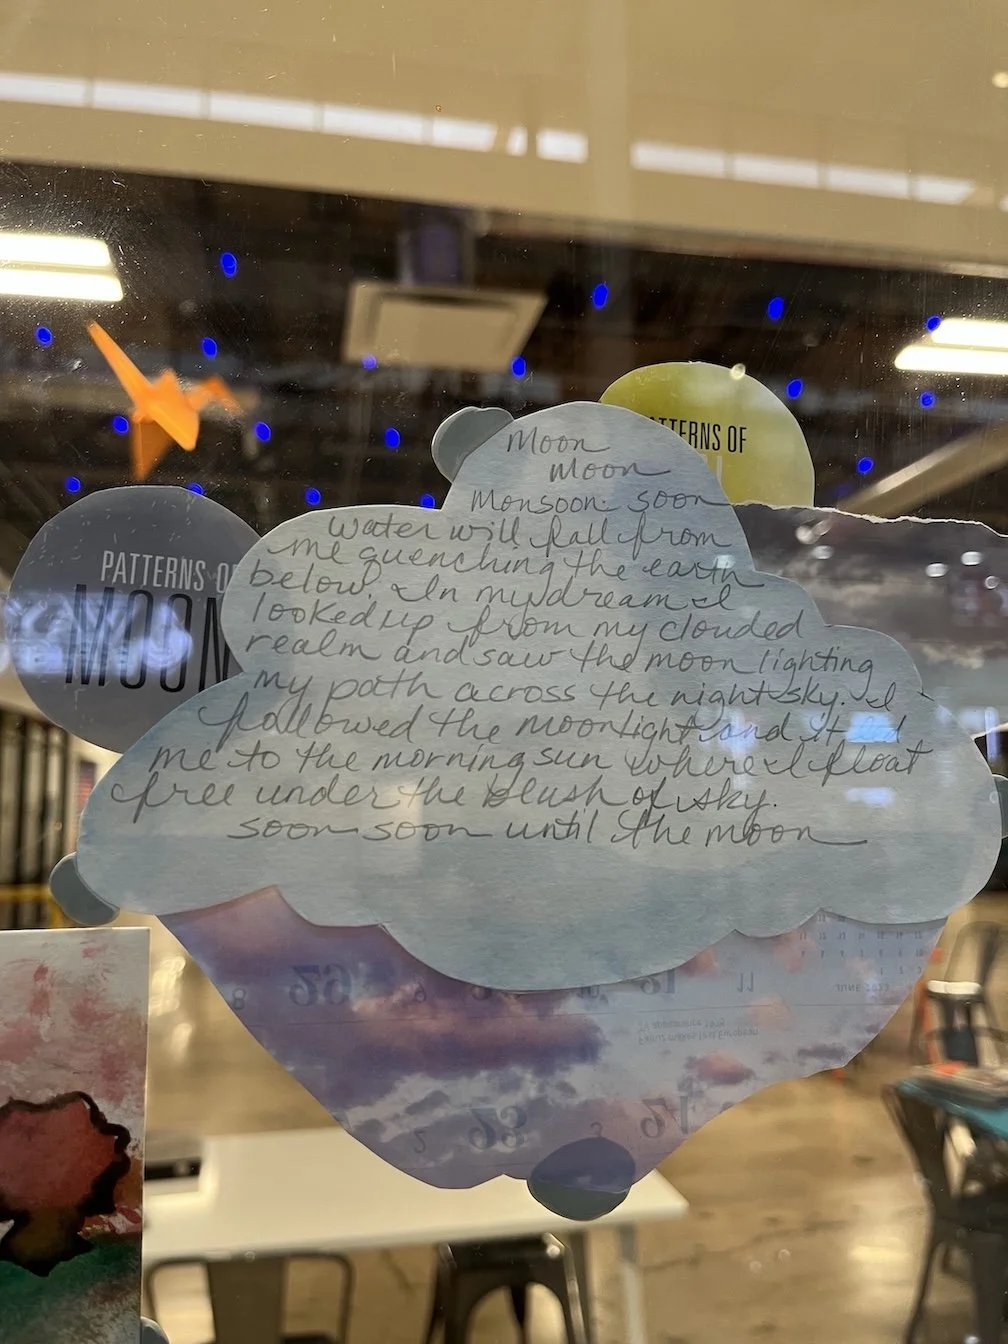 PATTERNS OF
Moon
Moon
Monsoon soon
water will fall from
me quenching the earth
below. In my dream I
looked up from my clouded
realm and saw the moon lighting
my path across the night sky. I
followed the moonlight and it led
me to the morning sun where I float
free under the blush of sky.
soon soon until the moon
PATTERNS OF
MOON
8
29
9
11
JUNE 2023
2
23
3
24